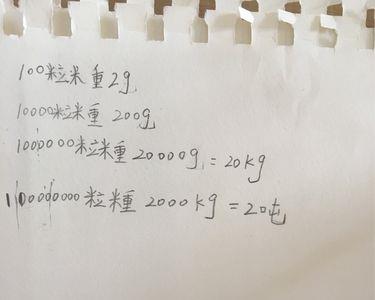 100粒米重2g
10000粒米重 200g
1000000粒米重20000g=20kg
100000000粒米重 2000kg=20吨